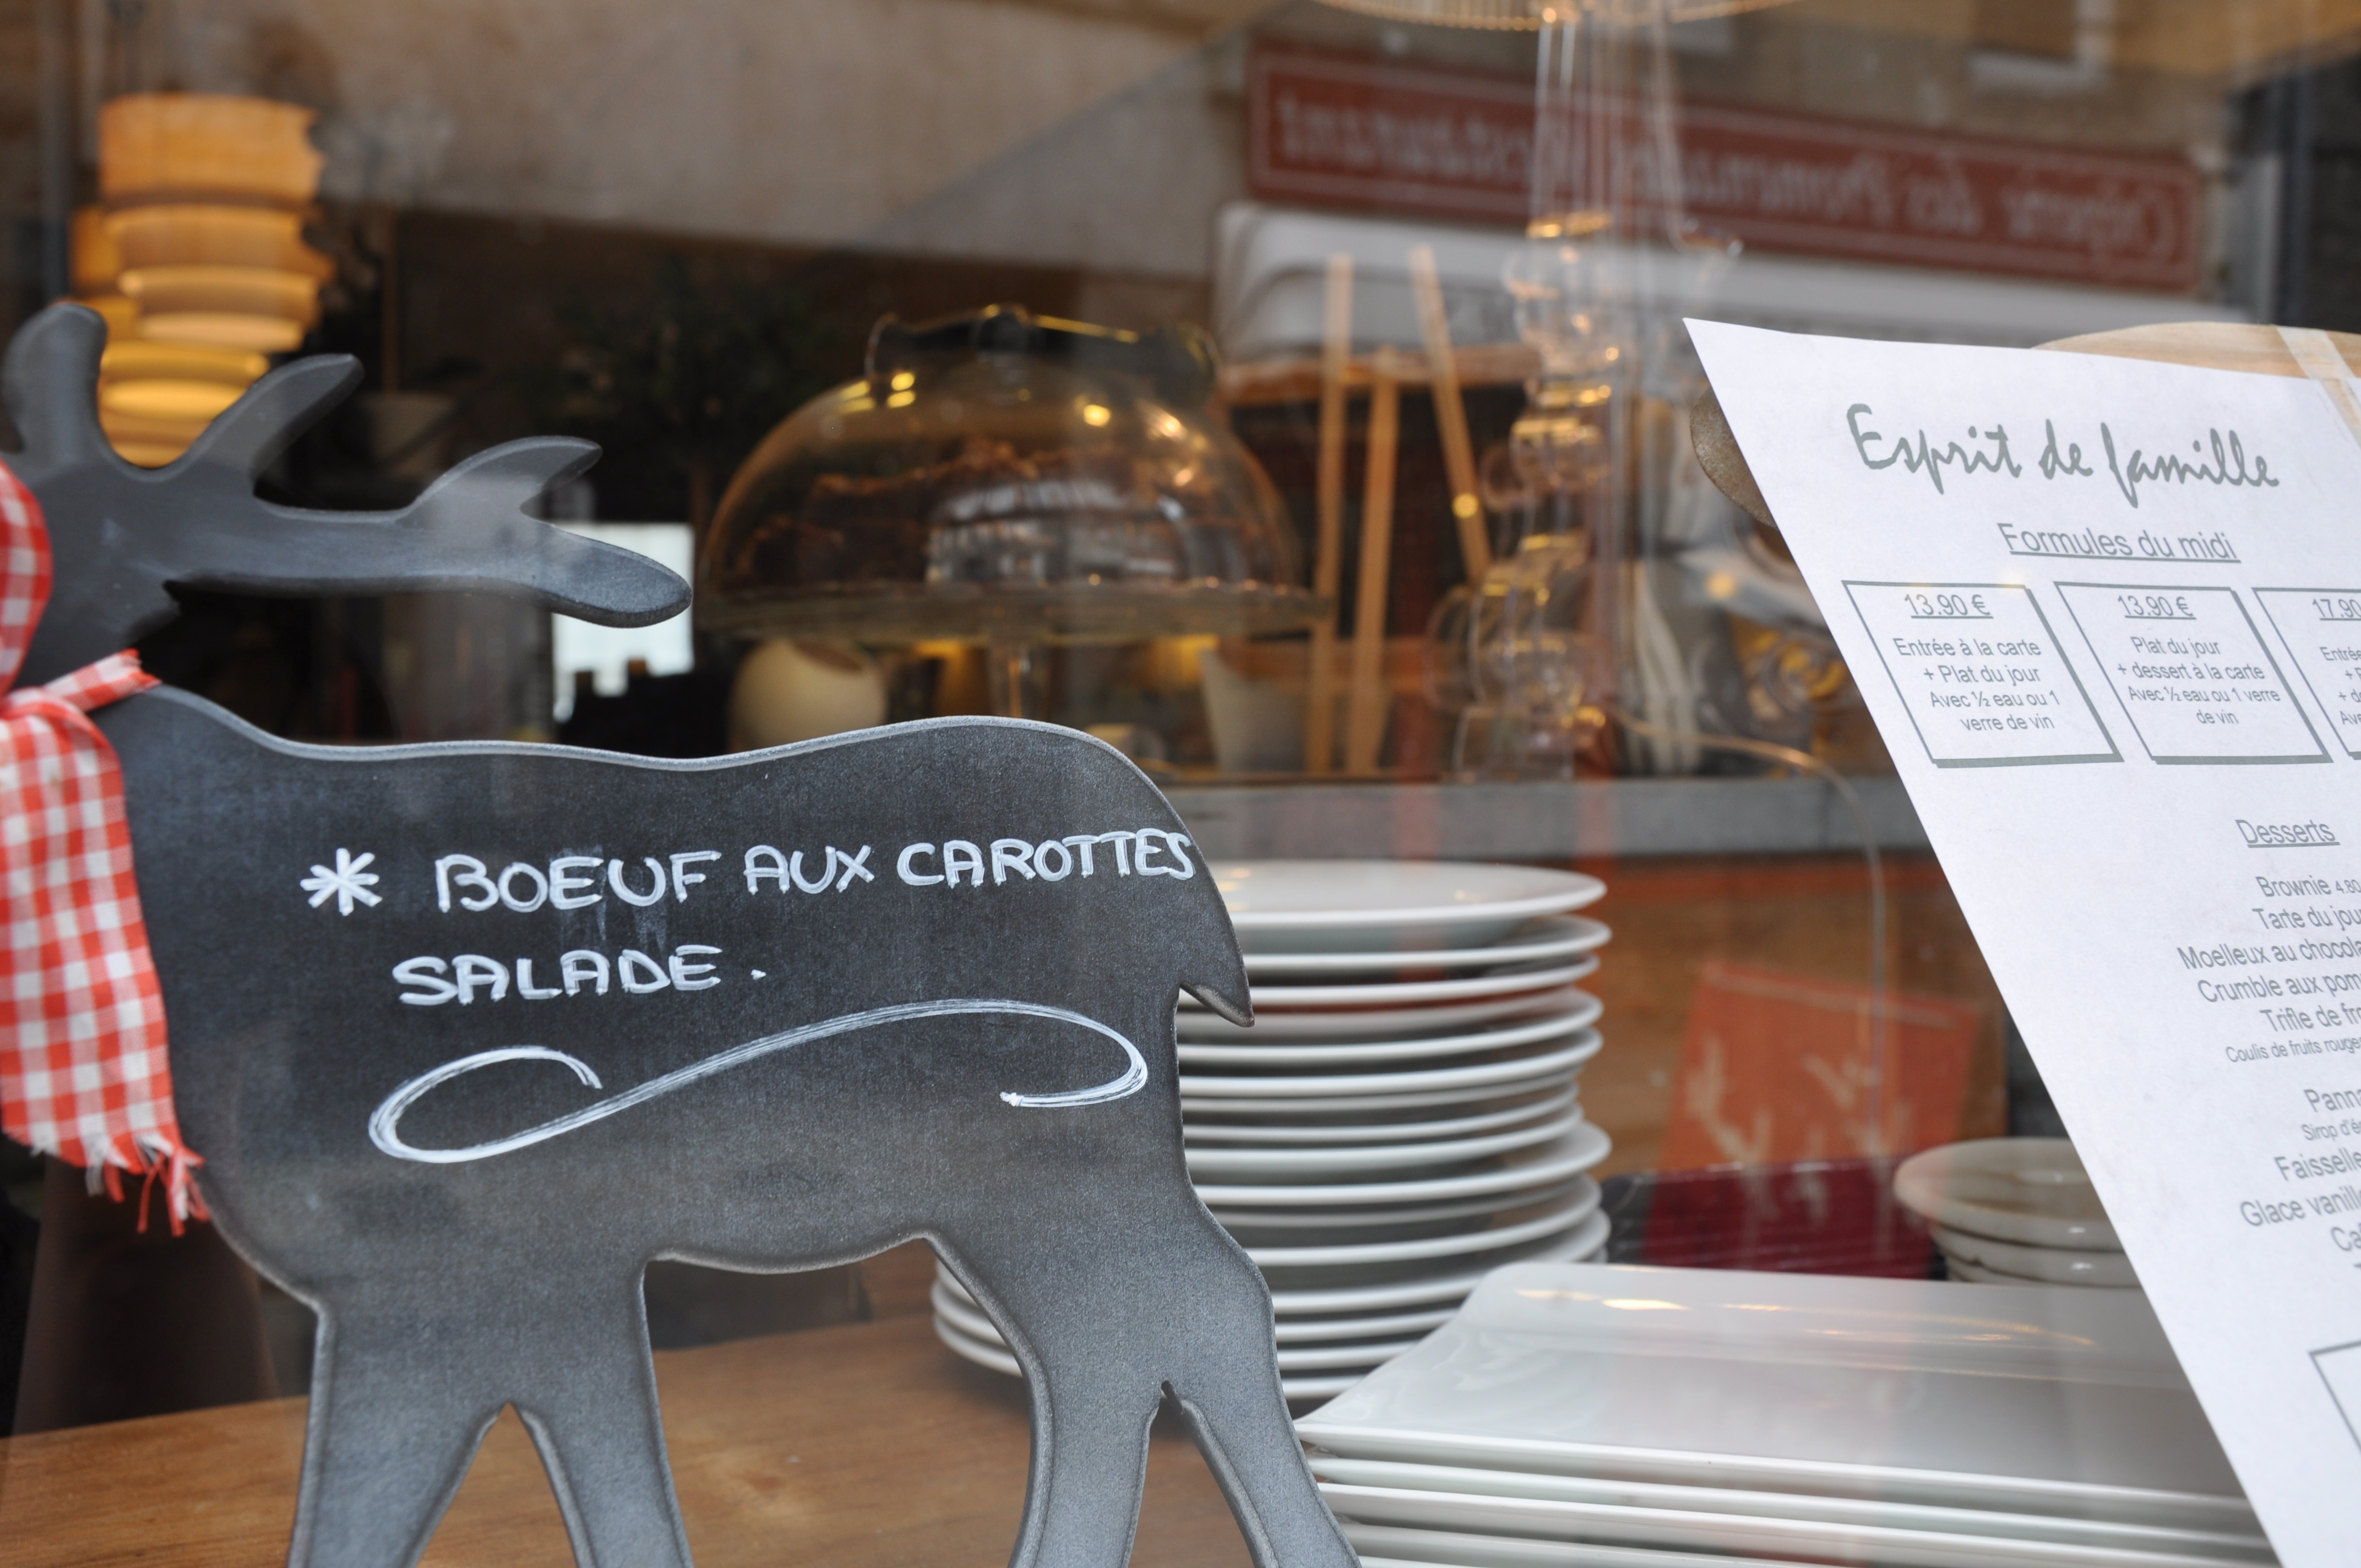 * BOEUF AUX CAROTTES
SALADE.
Esprit de famille
Formules du midi
13.90 €
Entrée à la carte
+ Plat du jour
Avec ½ eau ou 1
verre de vin
13.90 €
Plat du jour
+ dessert à la carte
Avec ½ eau ou 1 verre
de vin
17.90
Desserts
Brownie 4.80
Tarte du jour
Moelleux au
Crumble aux
Trifle de
Coulis de fruits
Sirop
Glace